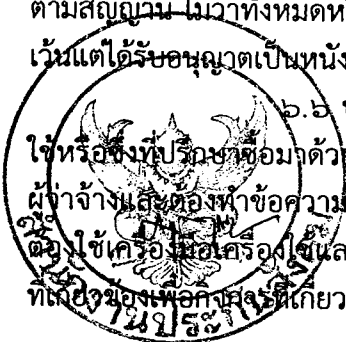 ตามสัญญานี้ ไม่ว่าทั้งหมดห
เว้นแต่ได้รับอนุญาตเป็นหนัง
๖.๖
ใช้หรือซึ่งที่ปรึกษาซื้อมาด้วย
ผู้ว่าจ้างและต้องทำข้อความ
ต้องใช้เครื่องมือเครื่องใช้และ
ที่เกี่ยวข้องเพื่อกิจการที่เกี่ยว
สำนักงานประกันสังคม